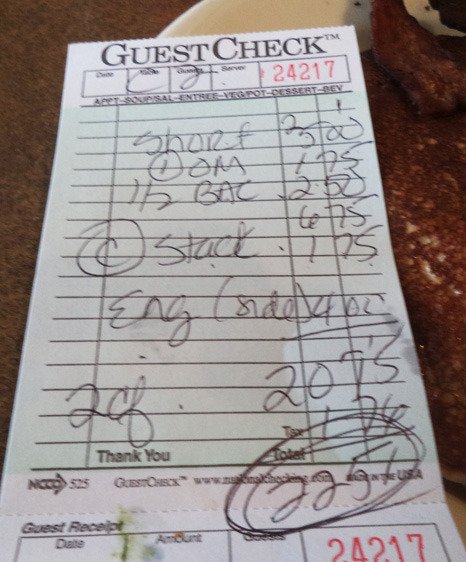 GUESTCHECK™
Date Table Guests Server 24217
APPT-SOUP/SAL-ENTREE-VEG/POT-DESSERT-BEV
Short 3 50
① OM 1 75
1/2 BAC 2 50
6 75
Stack 1 75
Eng (side)
2 cf 20 75
Tax 1 76
Thank You Total
22 51
NCCO 525 GUESTCHECK™ www.nationalchecking.com MADE IN THE USA
Guest Receipt
Date Amount Guests 24217